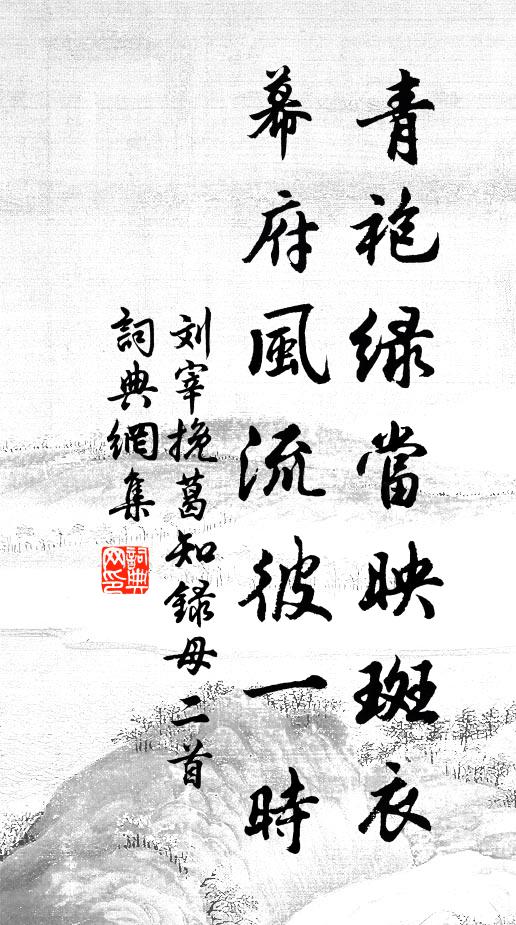 青袍绿當映斑衣
幕府風流彼一時
刘宰挽葛知録母二首
詞典網集
詞典网印